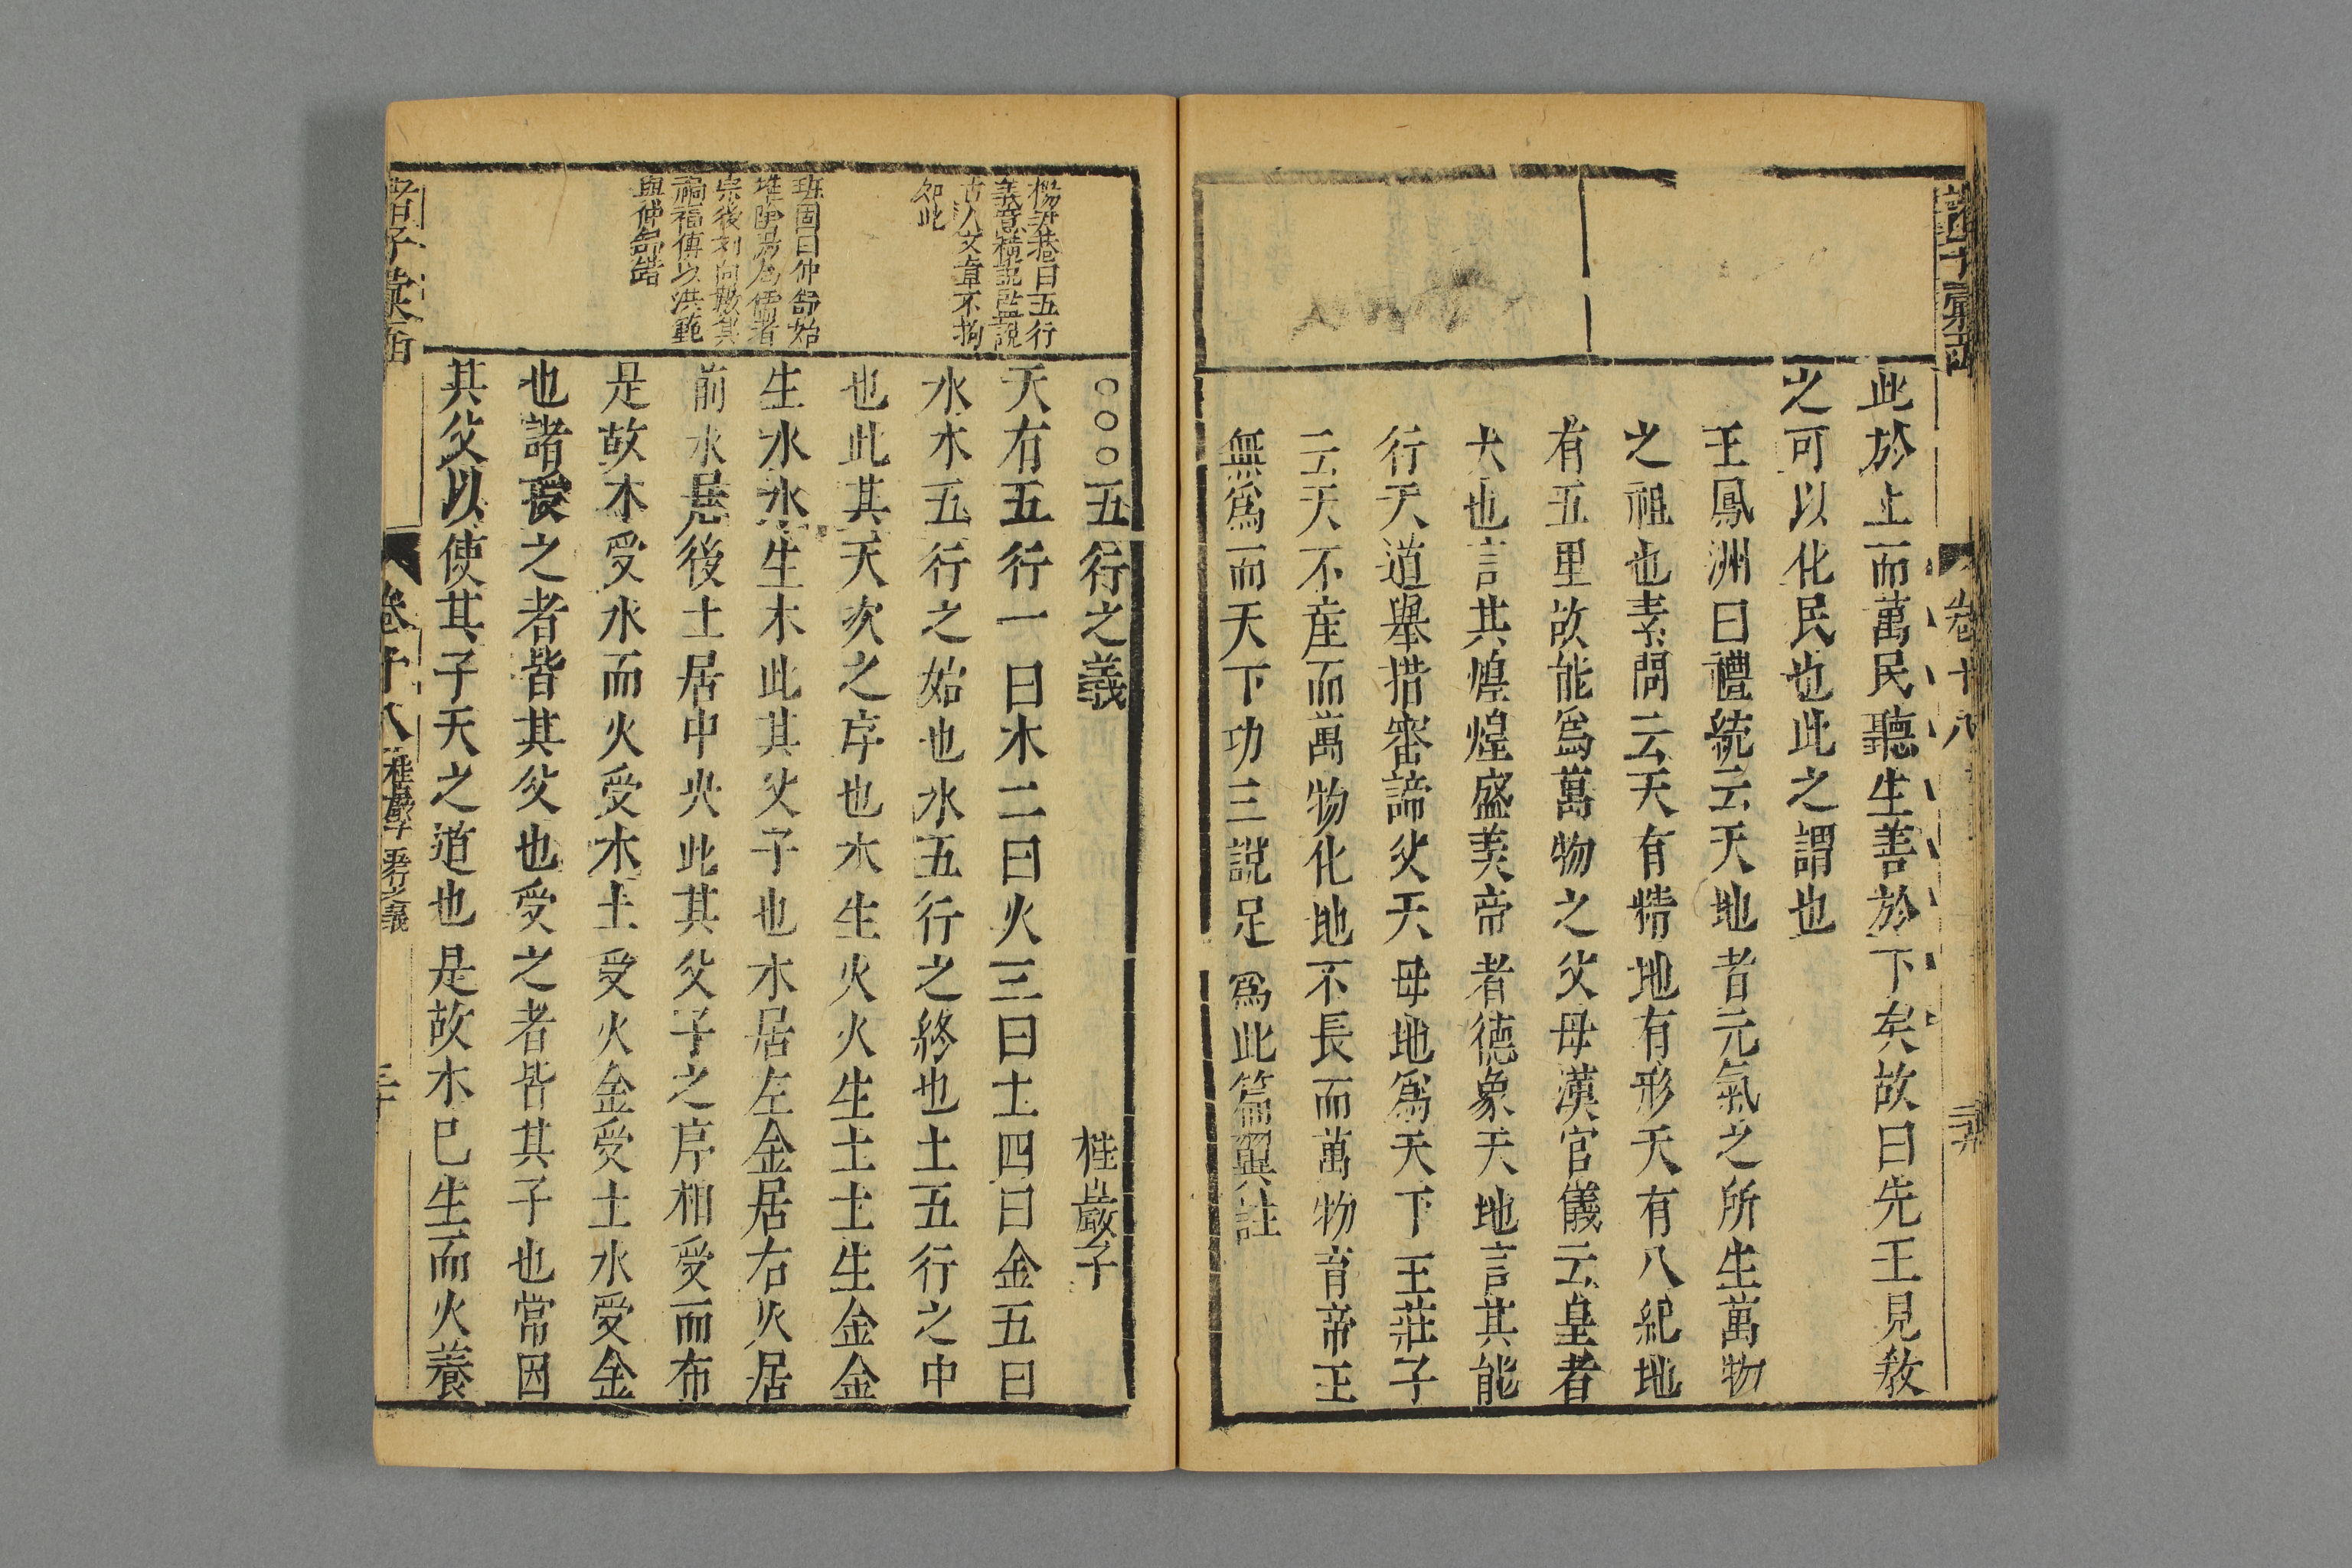 此於上而萬民聽生善於下矣故曰先王見教
之可以化民也此之謂也
王鳳洲曰禮統云天地者元氣之所生萬物
之祖也素問云天有精地有形天有八紀地
有五里故能爲萬物之父母漢官儀云皇者
大也言其煌煌盛美帝者德象天地言其能
行天道舉措審諦父天母地爲天下王莊子
云天不產而萬物化地不長而萬物育帝王
無爲而天下功三說足爲此篇翼註
卷十八
楊升菴曰五行
義意橫說豎說
古人文章不拘
如此
班固曰仲舒始
推陰陽爲儒者
宗後劉向數其
禍福傅以洪範
與仲舒錯
○○○五行之義 桂巖子
天有五行一曰木二曰火三曰土四曰金五曰
水木五行之始也水五行之終也土五行之中
也此其天次之序也木生火火生土土生金金
生水水生木此其父子也木居左金居右火居
前水居後土居中央此其父子之序相受而布
是故木受水而火受木土受火金受土水受金
也諸受之者皆其父也受之者皆其子也常因
其父以使其子天之道也是故木已生而火養
卷十八 桂巖子 五行之義 三十